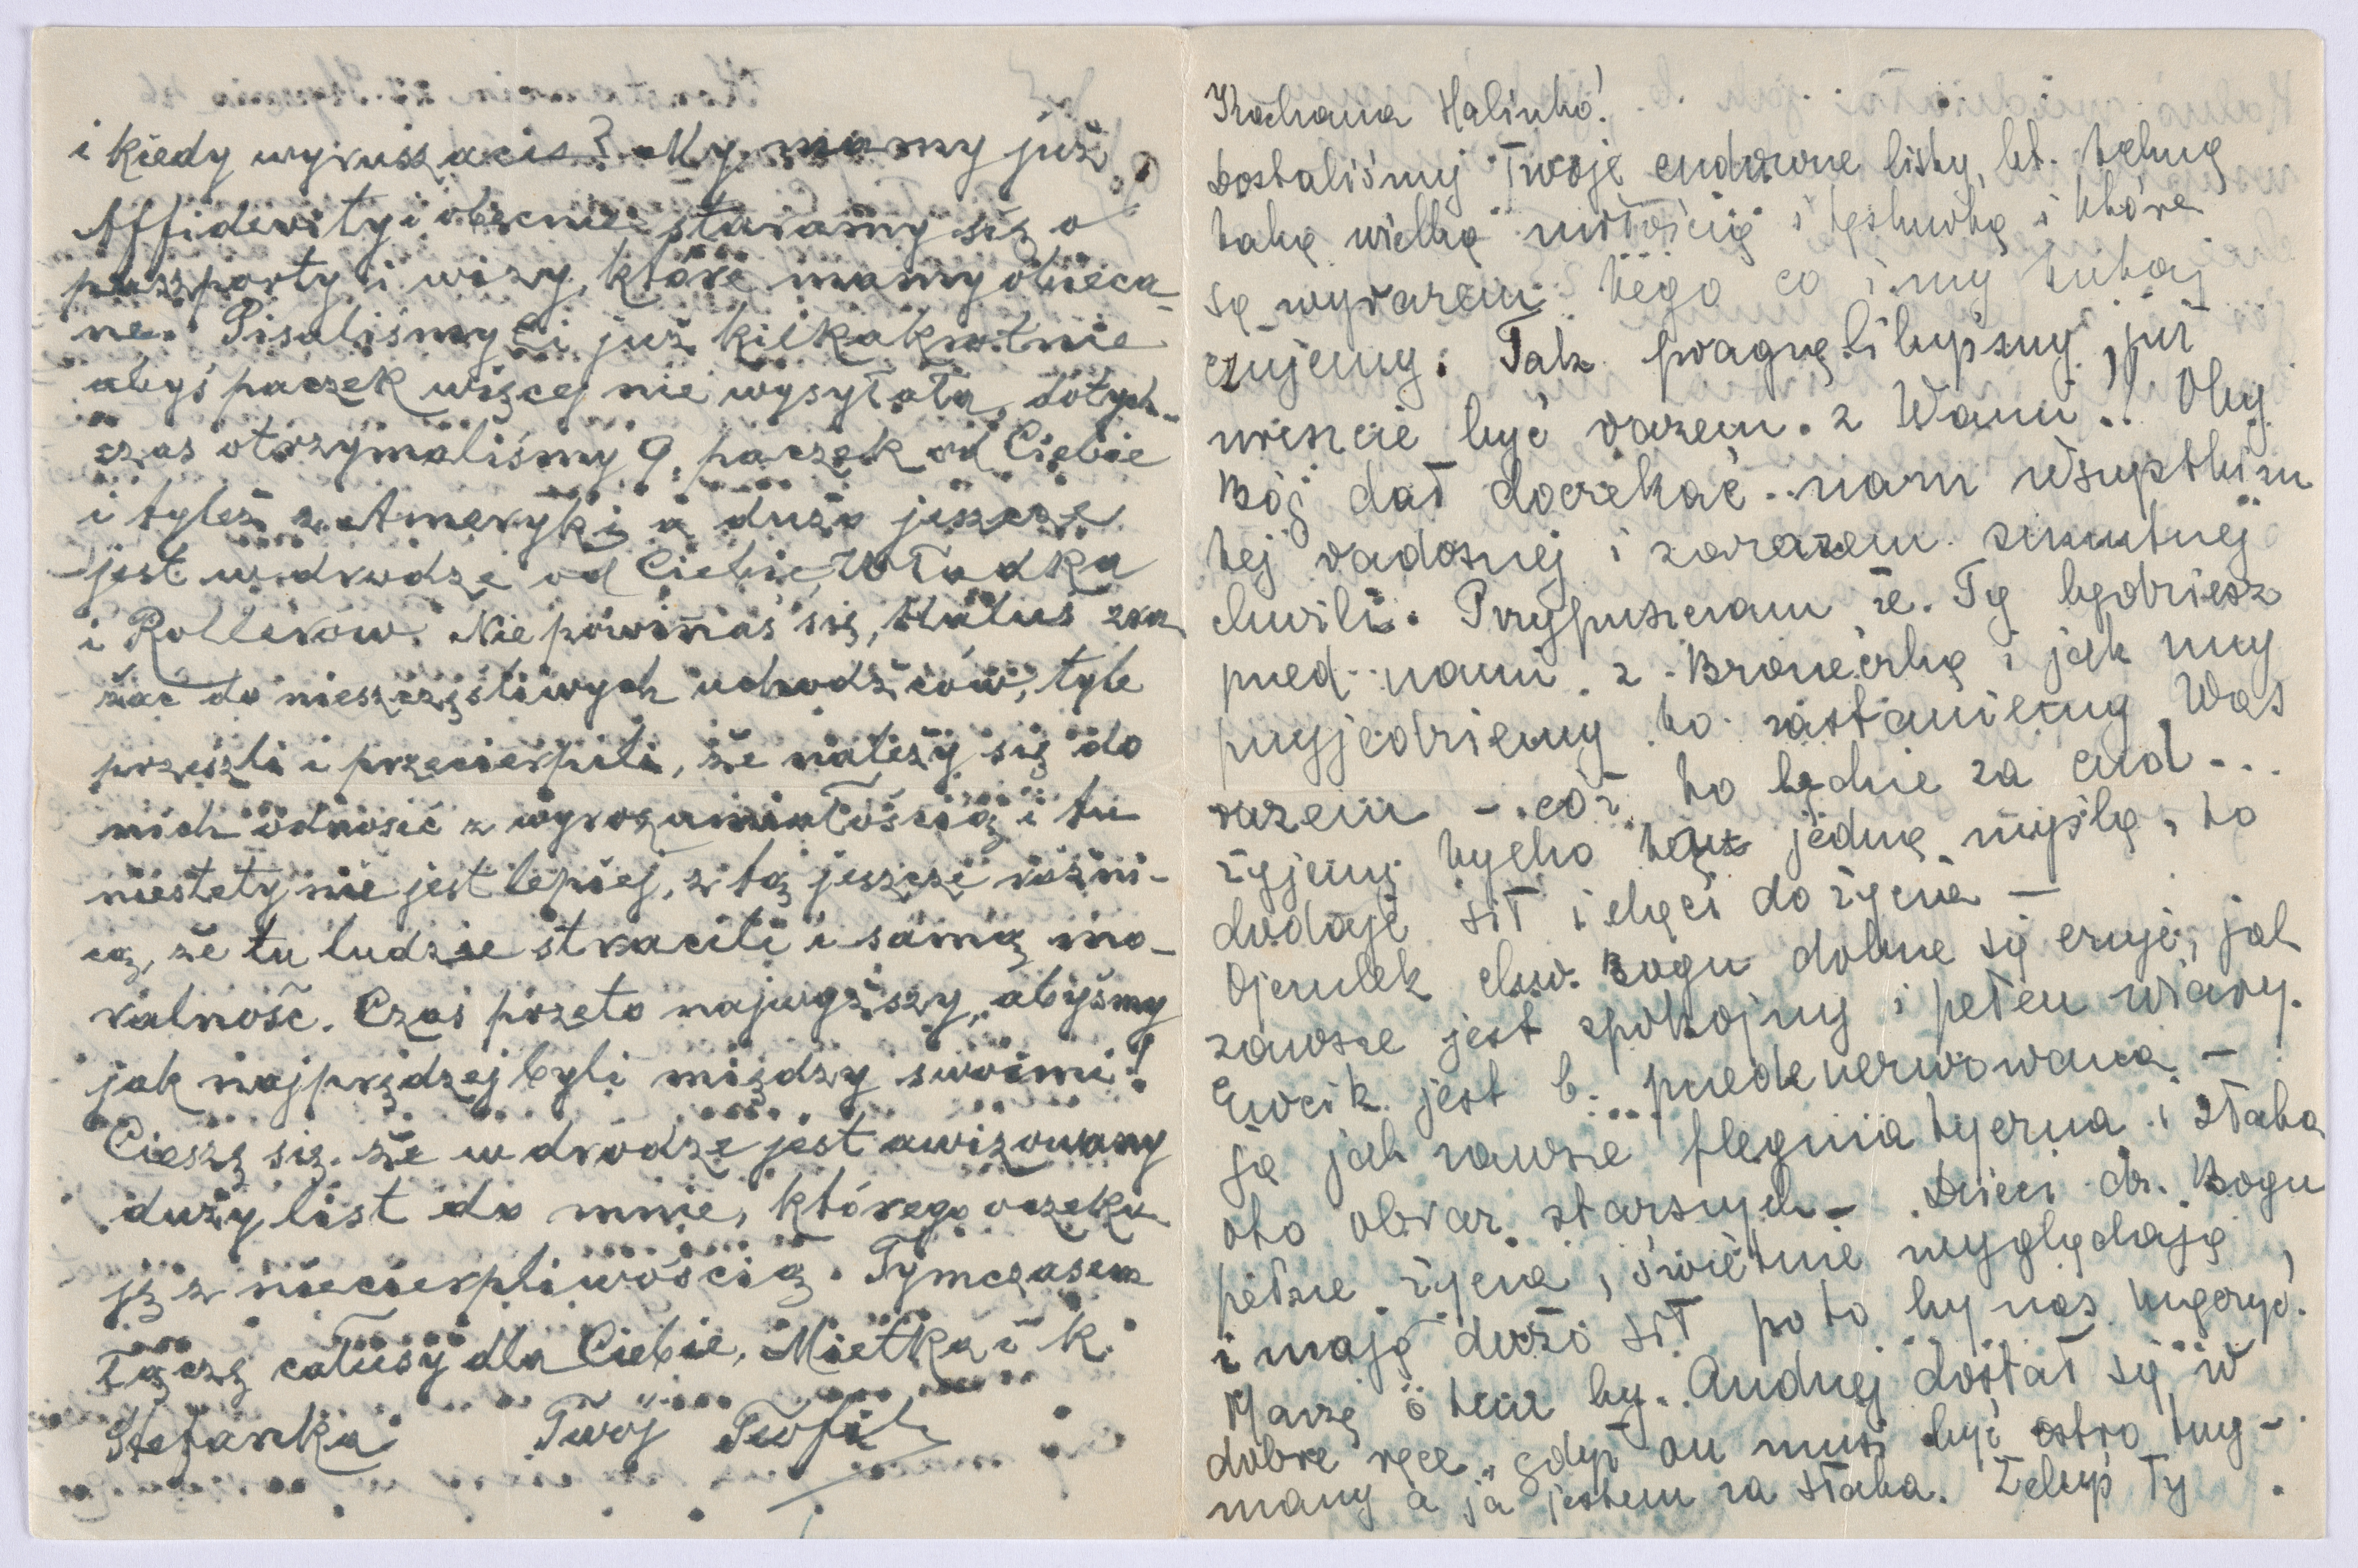 i kiedy wyruszacie? My mamy już
Affidevity i obecnie staramy się o
paszporty i wizy, które mamy obieca-
ne. Pisaliśmy Ci już kilkakrotnie
abyś paczek więcej nie wysyłała, dotych-
czas otrzymaliśmy 9. paczek od Ciebie
i tyleż z Ameryki a dużo jeszcze
jest w drodze od Ciebie, Władka
i Rollerów. Nie powinnaś się, Haluś zra
żać do nieszczęśliwych uchodźców, tyle
przeszli i przecierpili, że należy się do
nich odnosić z wyrozumiałością i tu
niestety nie jest lepiej, z tą jeszcze różni-
cą, że tu ludzie stracili i samą mo-
ralność. Czas przeto najwyższy, abyśmy
jak najprędzej byli między swoimi!
Cieszę się, że w drodze jest awizowany
duży list do mnie, którego oczeku
ję z niecierpliwością. Tymczasem
łączę całusy dla Ciebie, Mietka i k.
Stefanka Twój Teofil
Kochana Halinko!
Dostaliśmy Twoje cudowne listy, kt. tchną
taką wielką miłością i tęsknotą i które
są wyrazem tego co i my tutaj
czujemy. Tak pragnęlibyśmy już
wreszcie być razem z Wami! Oby
Bóg dał doczekać nam wszystkim
tej radosnej i zarazem smutnej
chwili. Przypuszczam że Ty będziesz
przed nami z Broneczką i jak my
przyjedziemy to zastaniemy Was
razem – cóż to będzie za cud...
Żyjemy tylko tą jedną myślą, to
dodaje sił i chęci do życia –
Ojczulek chw. Bogu dobrze się czuje, jak
zawsze jest spokojny i pełen wiary.
Ewcik jest b. przedenerwowana –
ja jak zawsze flegmatyczna i słaba
oto obraz starszych – Dzieci dz. Bogu
pełne życia, świetnie wyglądają
i mają dużo sił po to by nas męczyć!
Marzę o tem by Andrzej dostał się w
dobre ręce, gdyż on musi być ostro trzy-
many a ja jestem za słaba. Żebyś Ty